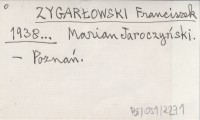 ZYGARŁOWSKI Franciszek
1938... Marian Jaroczyński.
– Poznań.